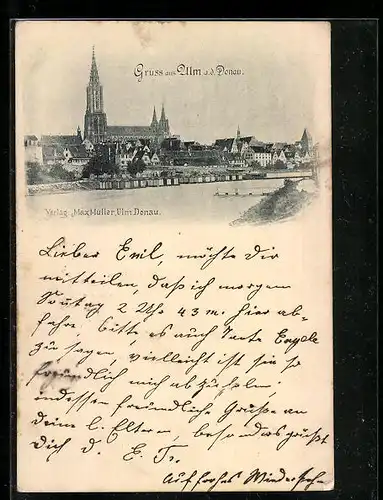 Gruss aus Ulm a.d. Donau.
Verlag Max Müller, Ulm Donau.
Lieber Emil, möchte Dir
mitteilen, daß ich morgen
Sontag 2 Uhr 43 m. hier ab-
fahre. bitte es auch Tante
zu sagen, vielleicht ist sie so
freundlich mich abzuholen.
indessen freundliche Grüße an
deine l. Eltern, besonders grüßt
Dich d. E. Fr.
Auf frohes Wiedersehn